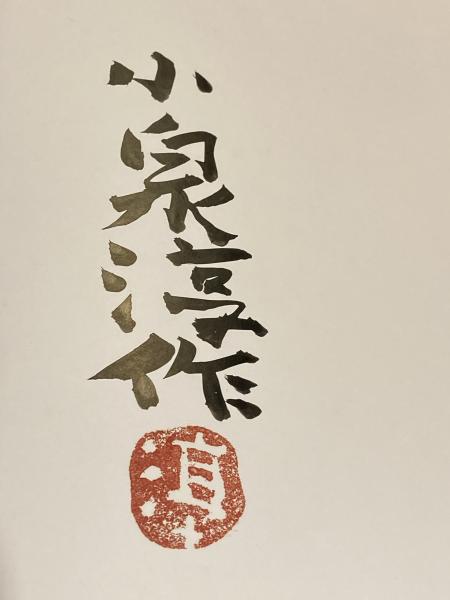 小泉淳作
淳